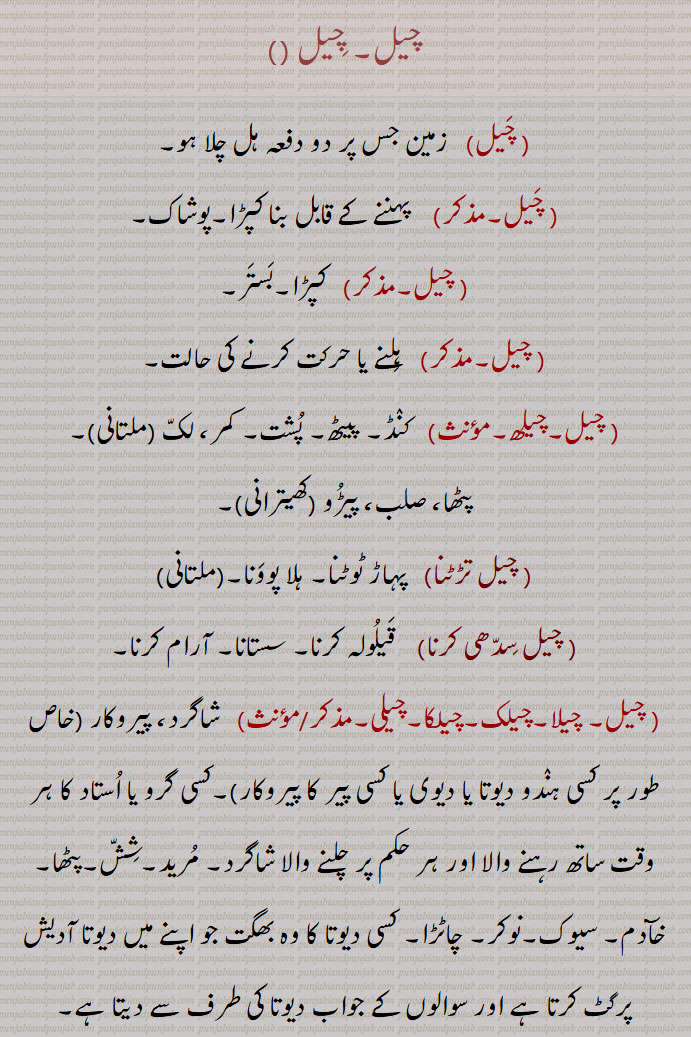 چیل۔چِیل ()
(چَیل) زمین جس پر دو دفعہ ہل چلا ہو۔
(چَیل۔مذکر) پہننے کے قابل بنا کپڑا۔پوشاک۔
(چیل۔مذکر) کپڑا۔بَستَر۔
(چیل۔مذکر) ہِلنے یا حرکت کرنے کی حالت۔
(چیل۔چیلھ۔مؤنث) کنْڈ۔ پیٹھ۔ پُشت۔ کمر، لکّ (ملتانی)۔
پٹھا، صلب، پیڑُو (کھیترانی)۔
(چیل تڑٹنا) پہاڑ ٹوٹنا۔ ہلا پووَنا۔(ملتانی)
(چیل سِدّھی کرنا) قَیلُولہ کرنا۔ سستانا۔ آرام کرنا۔
(چیل۔ چیلا۔چیلک۔چیلکا۔چیلی۔مذکر/مؤنث) شاگرد، پیروکار (خاص
طور پر کسی ہنْدو دیوتا یا دیوی یا کسی پیر کا پیروکار)۔کسی گرو یا اُستاد کا ہر
وقت ساتھ رہنے والا اور ہر حکم پر چلنے والا شاگرد۔ مُرید۔شِشّ۔پٹھا۔
خآدم۔ سیوک۔نوکر۔ چاٹڑا۔ کسی دیوتا کا وہ بھگت جو اپنے میں دیوتا آدیش
پرگٹ کرتا ہے اور سوالوں کے جواب دیوتا کی طرف سے دیتا ہے۔